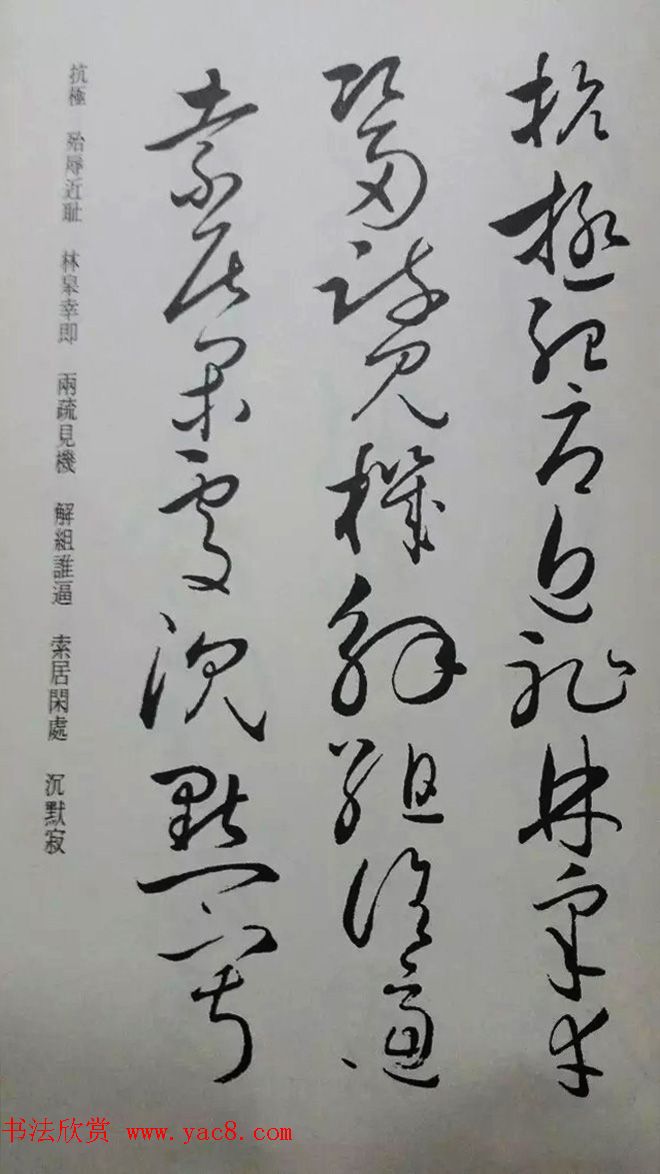 抗極殆辱近耻林皋幸
即兩疏見機解組誰逼
索居閑處沉默寂
抗極 殆辱近耻 林皋幸即 兩疏見機 解組誰逼 索居閑處 沉默寂
书法欣赏 www.yac8.com